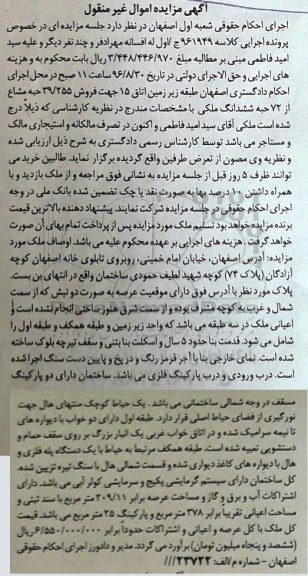 آگهی مزایده اموال غیر منقول
اجرای احکام حقوقی شعبه اول اصفهان در نظر دارد جلسه مزایده ای در خصوص
پرونده اجرایی کلاسه ۹۶۱۹۴۹ ج/اول له افسانه مهرادفر و چند نفر دیگر و علیه سید
امید فاطمی مبنی بر مطالبه مبلغ ۳/۴۴۸/۴۴۶/۹۷۰ ریال بابت محکوم به و هزینه
های اجرایی و حق الاجرای دولتی در تاریخ ۹۶/۸/۳۰ ساعت ۱۱ صبح در محل اجرای
احکام دادگستری اصفهان طبقه زیر زمین اتاق ۱۵ جهت فروش ۳۹/۲۵۵ حبه مشاع
از ۷۲ حبه ششدانگ ملکی با مشخصات مندرج در نظریه کارشناسی که ذیلاً درج
شده است ملکی آقای سید امید فاطمی و اکنون در تصرف مالکانه و استیجاری مالک
و مستاجر می باشد توسط کارشناس رسمی دادگستری به شرح ذیل ارزیابی شده
و نظریه وی مصون از تعرض طرفین واقع گردیده برگزار نماید. طالبین خرید می
توانند ظرف ۵ روز قبل از جلسه مزایده به نشانی فوق مراجعه و از ملک بازدید و با
همراه داشتن ۱۰ درصد بها به صورت نقد یا چک تضمین شده بانک ملی در وجه
اجرای احکام حقوقی در جلسه مزایده شرکت نمایند. پیشنهاد دهنده بالاترین قیمت
برنده مزایده خواهد بود تسلیم ملک مورد مزایده پس از پرداخت تمام بهای آن صورت
خواهد گرفت. هزینه های اجرایی بر عهده محکوم علیه می باشد. اوصاف ملک مورد
مزایده: آدرس اصفهان، خیابان امام خمینی، روبروی تابلوی خانه اصفهان کوچه
آزادگان (پلاک ۷۴) کوچه شهید لطیف حمودی ساختمان واقع در انتهای بن بست.
پلاک مورد نظر با آدرس فوق دارای موقعیت عرصه به صورت دو نبش که از سمت
شمال و غرب به کوچه مشرف بوده و از سمت شرق هنوز ساختی انجام نشده است و
اعیانی ملک در سه طبقه می باشد که واحد زیر زمین و طبقه همکف و طبقه اول را
شامل می شود. قدمت بنا حدود ۵ سال و اسکلت بنا بتنی و سقف تیرچه بلوک ساخته
شده است. نمای خارجی بنا با آجر قرمز رنگ و در پخ و پایین دست سنگ اجرا شده
است. درب ورودی و درب پارکینگ فلزی می باشد. ساختمان دارای دو پارکینگ
مسقف در وجه شمالی ساختمانی می باشد . یک حیاط کوچک منتهای هال جهت
نورگیری از فضای حیاط اصلی قرار دارد. طبقه اول دارای دو خواب با دیواره های
تا نیمه سرامیک شده و در اتاق خواب غربی یک انبار بزرگ بر روی سقف حمام و
دستشویی تعبیه شده است. طبقه همکف مرتبط به حیاط با یک دستگاه پله فلزی و
هال با دیواره های کاغذ دیواری شده و قسمت شمالی هال با سنگ تیره تزیین شده.
کل ساختمان دارای سیستم گرمایشی پکیج و سرمایشی کولر آبی می باشد. دارای
اشتراکات آب و برق و گاز و مساحت عرصه برابر ۲۰۹/۱۱ متر مربع با سند ثبتی و
مساحت اعیانی تقریبا برابر ۳۷۸ متر مربع و پارکینگ ۲۵ متر مربع می باشد. قیمت
کل ملک با کل عرصه و اعیانی و اشتراکات حدوداً برابر ۶/۵۵۰/۰۰۰/۰۰۰ ریال
(ششصد و پنجاه میلیون تومان) برآورد می گردد. مدیر و دادورز اجرای احکام حقوقی
اصفهان – شماره م/الف: ۲۳۷۲۲///